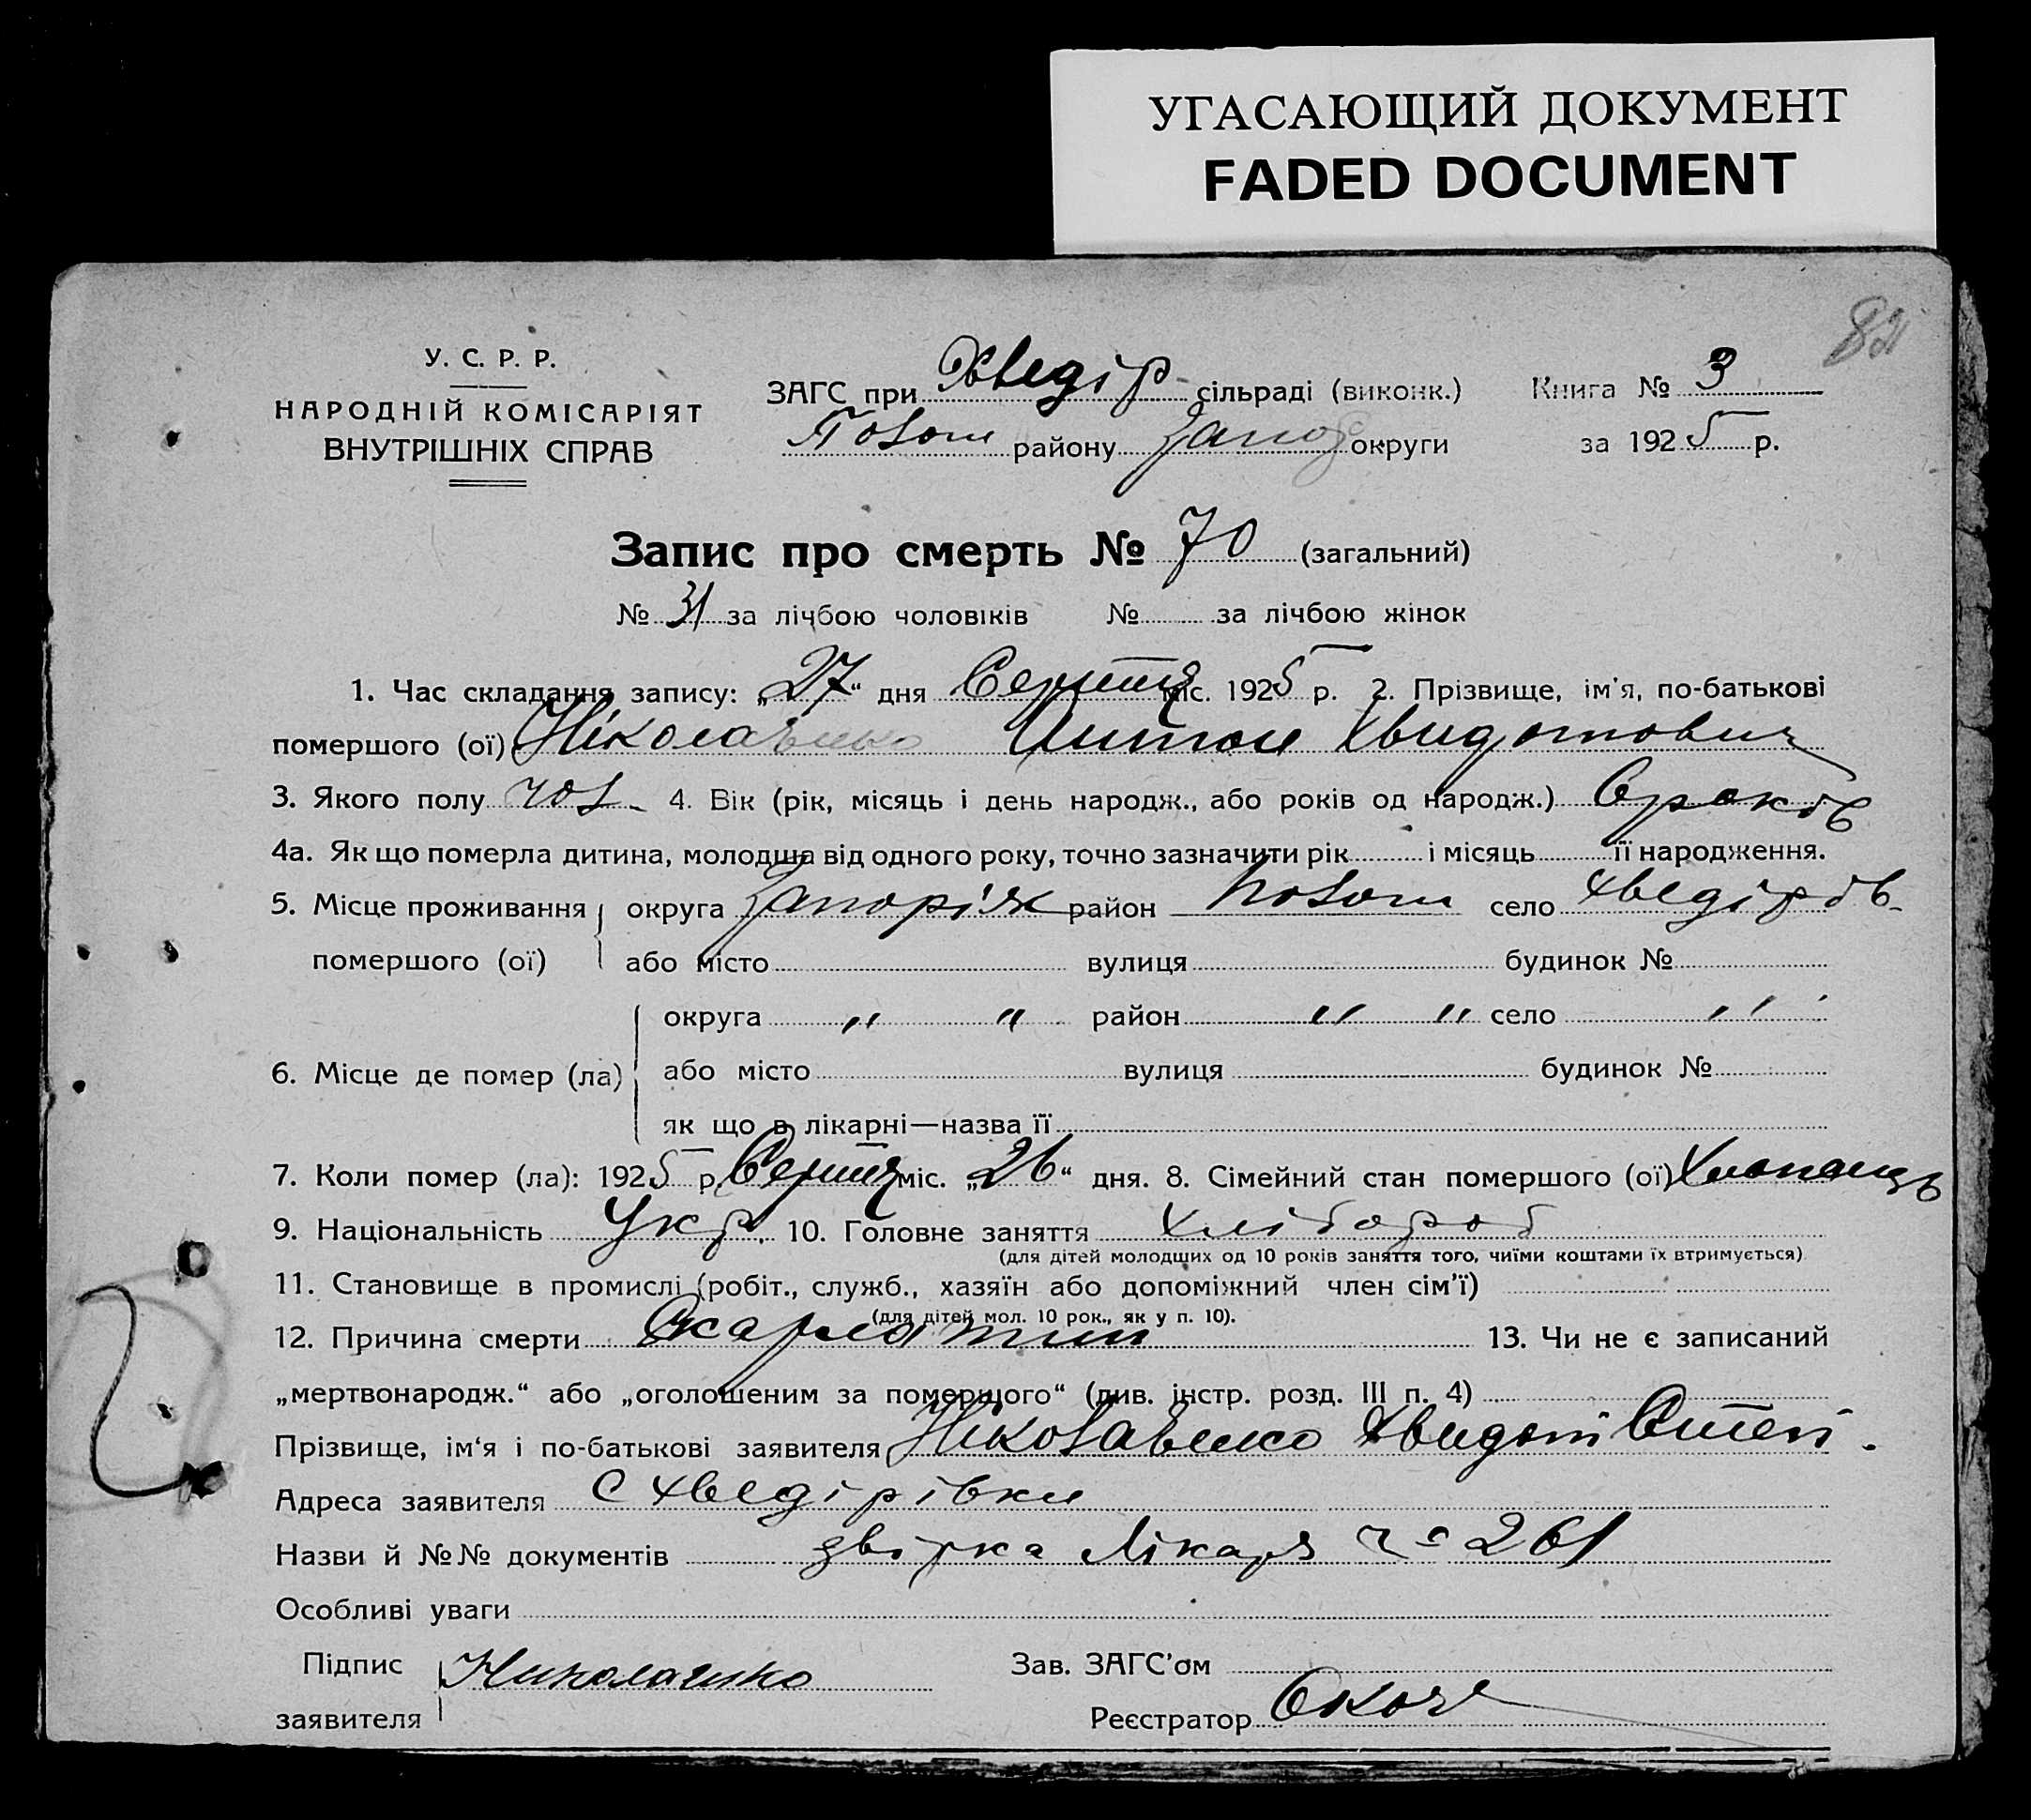 УГАСАЮЩИЙ ДОКУМЕНТ
FADED DOCUMENT
82
У. С. Р. Р.
НАРОДНІЙ КОМІСАРІЯТ
ВНУТРІШНІХ СПРАВ
ЗАГС при Хведір- сільраді (виконк.)
району Запор округи
Книга № 3
за 1925 р.
Запис про смерть № 70 (загальний)
№ 31 за лічбою чоловіків № за лічбою жінок
1. Час складання запису: „27“ дня Серпня міс. 1925 р. 2. Прізвище, ім'я, по-батькові
помершого (ої) Ніколаєнко Антон Хведотович
3. Якого полу чол. 4. Вік (рік, місяць і день народж., або років од народж.) 6 років
4а. Як що померла дитина, молодша від одного року, точно зазначити рік і місяць її народження.
5. Місце проживання округа Запоріж район село Хведірів-
помершого (ої) або місто вулиця будинок №
округа „ „ район „ „ село „
6. Місце де помер (ла) або місто вулиця будинок №
як що в лікарні—назва її
7. Коли помер (ла): 1925 р. Серпня міс. „26“ дня. 8. Сімейний стан помершого (ої) Хлопець
9. Національність Укр. 10. Головне заняття Хлібороб
(для дітей молодщих од 10 років заняття того, чиїми коштами їх втримується)
11. Становище в промислі (робіт., служб., хазяїн або допоміжний член сім'ї)
(для дітей мол. 10 рок., як у п. 10).
12. Причина смерти Скарлатин 13. Чи не є записаний
„мертвонародж.“ або „оголошеним за померщого“ (див. інстр. розд. III п. 4)
Прізвище, ім‘я і по-батькові заявителя Ніколаєнко Хведот
Адреса заявителя с Хведірівки
Назви й №№ документів звірка Лікаря 261
Особливі уваги
Підпис
заявителя Николаенко
Зав. ЗАГС'ом
Реєстратор